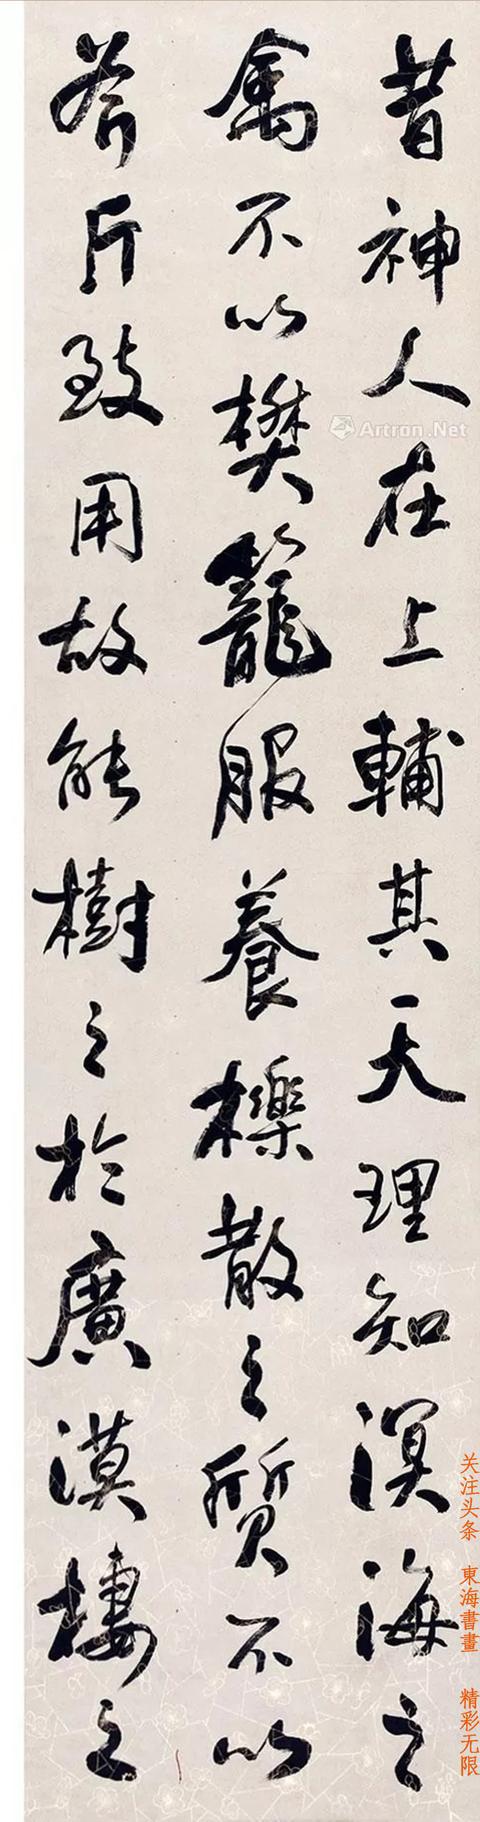 昔神人在上輔其天理知溟海之
禽不以樊籠服養櫟散之質不以
斧斤致用故能樹之於廣漠棲之
Artron.Net
关注头条 東海書畫 精彩无限